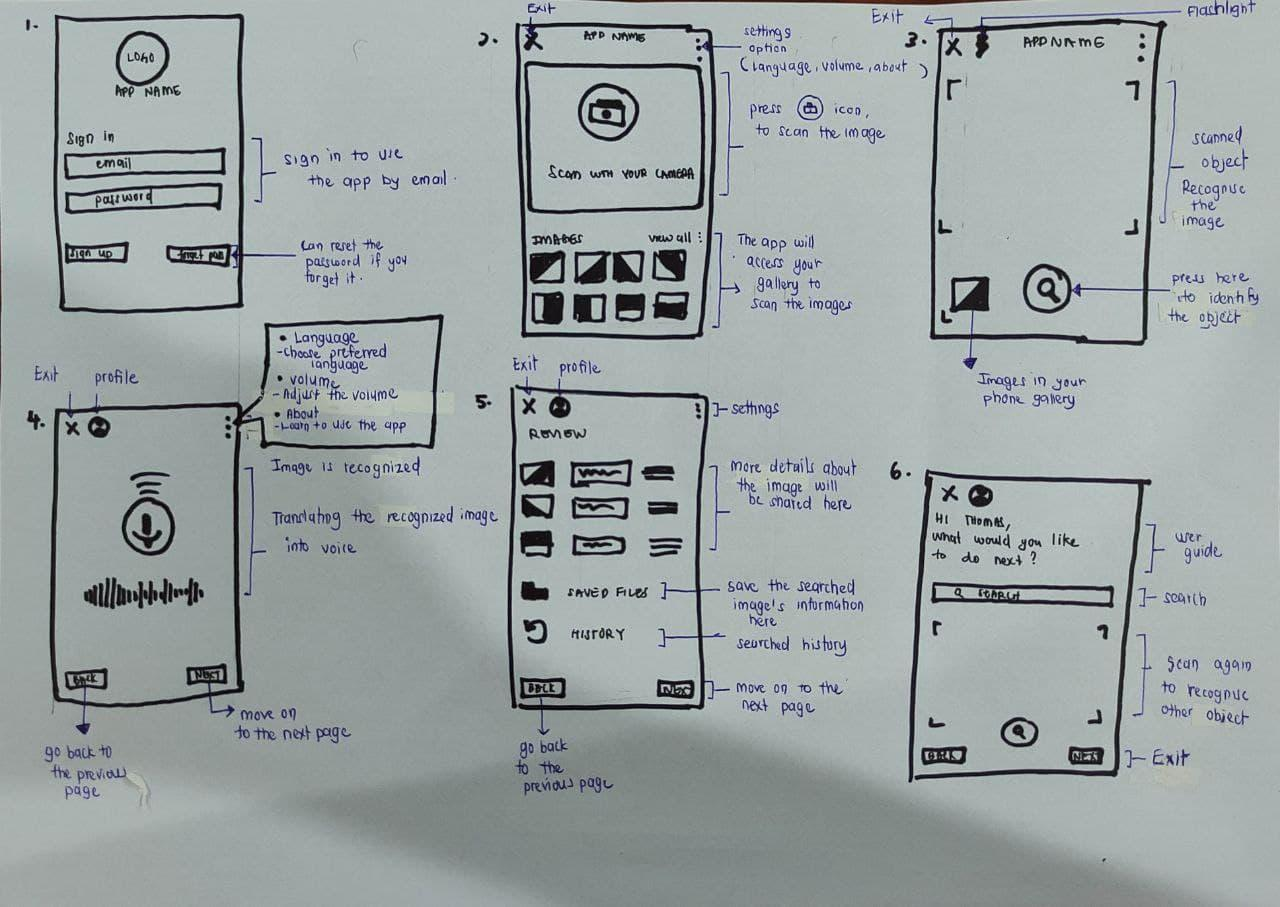 1.
LOGO
APP NAME
Sign in
email
password
sign up
forget pass
sign in to use
the app by email.
can reset the
password if you
forget it.
2.
Exit
X
APP NAME
settings
option
(language, volume, about)
SCAN WITH YOUR CAMERA
press
icon,
to scan the image
IMAGES
view all
The app will
access your
gallery to
scan the images
3.
Exit
Flashlight
X
APP NAME
scanned
object
Recognise
the
image
press here
to identify
the object
Images in your
phone gallery
4.
Exit
profile
X
• Language
-choose preferred
language
• volume
- Adjust the volume
• About
-Learn to use the app
Image is recognized
Translating the recognized image
into voice
BACK
NEXT
go back to
the previous
page
move on
to the next page
5.
Exit
profile
X
settings
REVIEW
more details about
the image will
be shared here
SAVED FILES
save the searched
image's information
here
HISTORY
searched history
BACK
NEXT
move on to the
next page
go back
to the
previous page
6.
X
HI THOMAS,
what would you like
to do next?
user
guide
SEARCH
search
scan again
to recognise
other object
BACK
NEXT
Exit